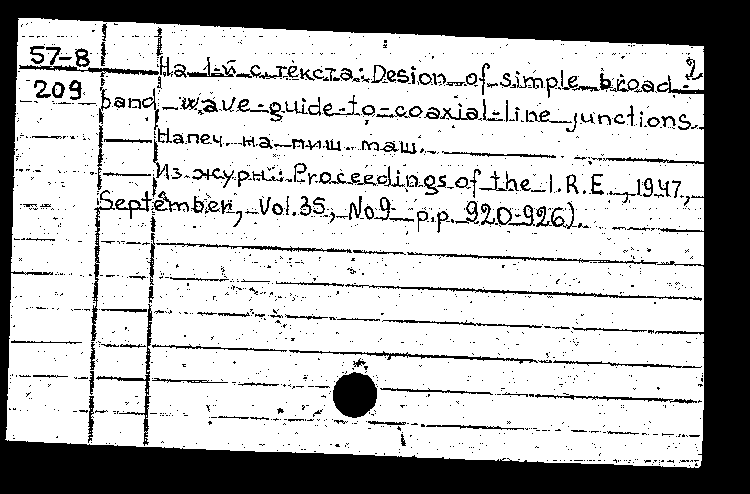 2
57-8
209
На 1-й с. текста: Desion of simple broad-
band wave-guide-to-coaxial-line junctions
Напеч. на пиш. маш.
Из журн.: Proceedings of the I.R.E., 1947,
September, Vol.35, No9 p.p. 920-926).